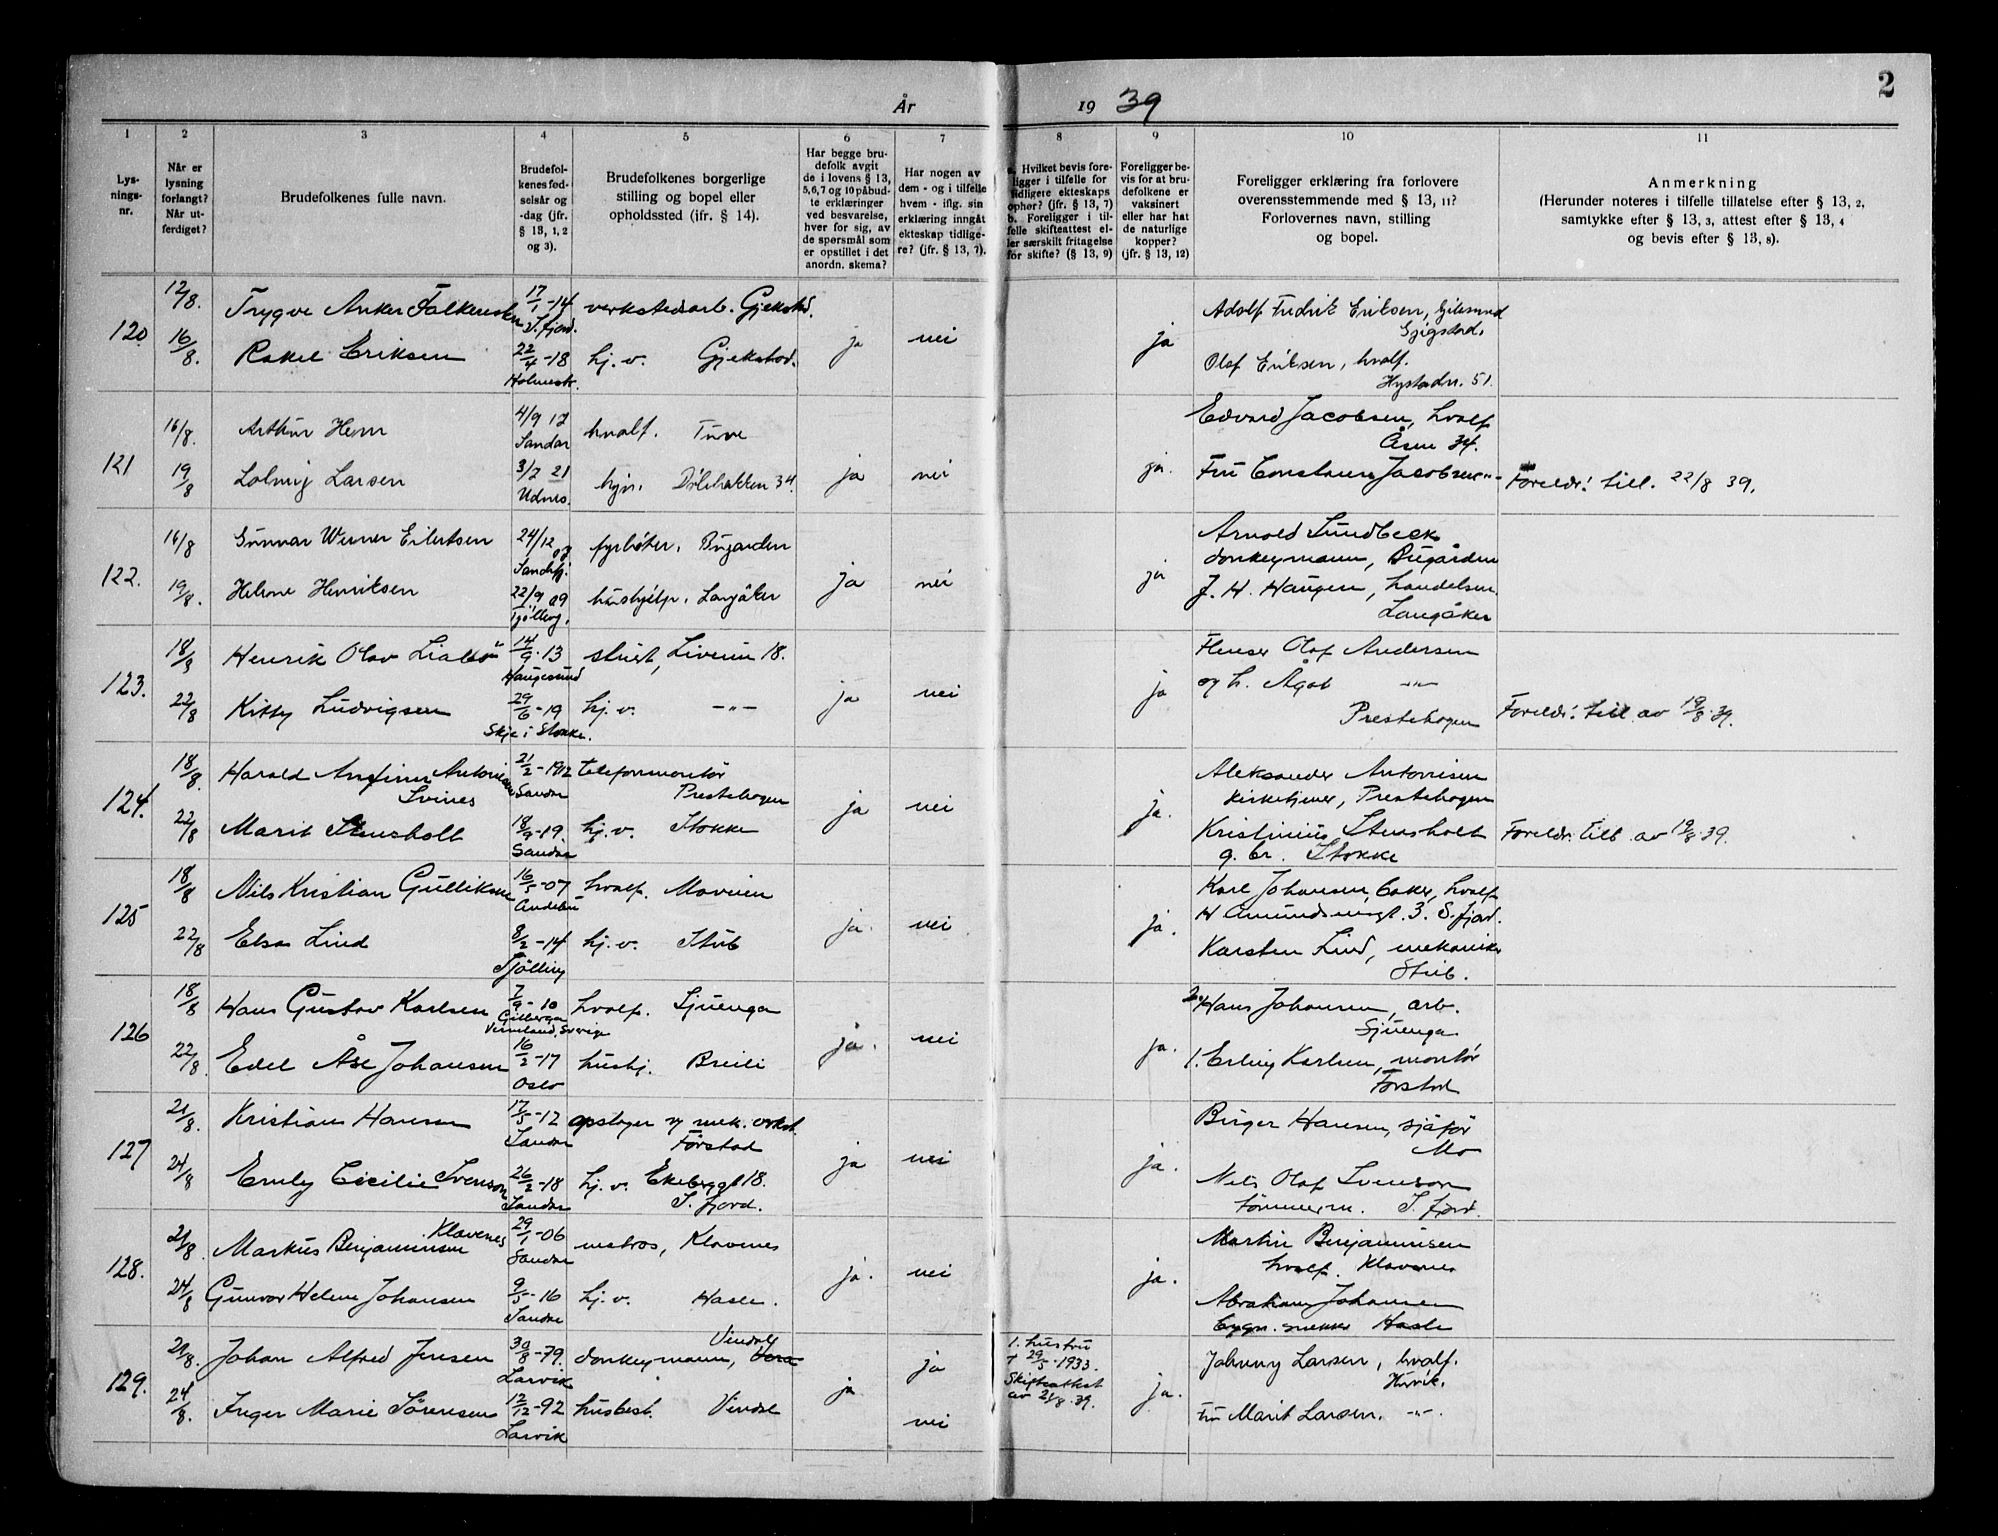 År 1939
2
1 2 3 4 5 6 7 8 9 10 11
Lys-
nings-
nr.
Når er
lysning
forlangt?
Når ut-
ferdiget?
Brudefolkenes fulle navn.
Brudefol-
kenes fød-
selsår og
-dag (jfr.
§ 13, 1, 2
og 3).
Brudefolkenes borgerlige
stilling og bopel eller
opholdssted (jfr. § 14).
Har begge bru-
defolk avgit
de i lovens § 13,
5,6,7 og 10 påbud-
te erklæringer
ved besvarelse,
hver for sig, av
de spørsmål som
er opstillet i det
anordn. skema?
Har nogen av
dem - og i tilfelle
hvem - iflg. sin
erklæring inngåt
ekteskap tidlige-
re? (jfr. § 13, 7).
a. Hvilket bevis fore-
ligger i tilfelle for
tidligere ekteskaps
ophør? (jfr. § 13, 7)
b. Foreligger i til-
felle skifteattest el-
ler særskilt fritagelse
for skifte? (§ 13, 9)
Foreligger be-
vis for at bru-
defolkene er
vaksinert
eller har hat
de naturlige
kopper?
(jfr. § 13, 12)
Foreligger erklæring fra forlovere
overensstemmende med § 13, 11?
Forlovernes navn, stilling
og bopel.
Anmerkning
(Herunder noteres i tilfelle tillatelse efter § 13, 2,
samtykke efter § 13, 3, attest efter § 13, 4
og bevis efter § 13, 8).
120. 12/8. Trygve Anker Falkensten 17/1-14 S.fjord. verkstedsarb. Gjekstad. ja nei ja Adolf Fredrik Eriksen,
Gjigstad.
16/8. Rakel Eriksen 22/4-18 Holmestr. hj.v. Gjekstad. Olaf Eriksen, hvalf.
Hystadv. 51.
121 16/8. Arthur Hem 4/9 12 Sandar hvalf. ja nei ja. Edvard Jacobsen, hvalf
Åsen 34.
19/8 Solveig Larsen 3/2 21 Udnes. hjv. 34. Fru Constance Jacobsen -"- Foreldr. till. 22/8 39.
122. 16/8 Gunnar Werner Eilertsen 24/12 09 Sandefj. fyrbøter, Bugården ja nei ja Arnold Lundbeck
donkeymann, Bugården
19/8. Helene Henriksen 22/9 09 Tjølling. hushjelp, Langåker J. H. Haugen, handelsm.
Langåker
123. 18/8 Henrik Olav 14/9-13 Haugesund stuert, 18. ja nei ja Flenser Olaf Andersen
22/8 Kitty Ludvigsen 29/6-19 Skje i Stokke. hj.v. -"- og h. Ågot -"-
Prestehagen Foreldr. till. av 19/8-39.
124. 18/8 Harald Anfinn Antonisen
Svines 21/2-1912 Sandar telefonmontør
Prestehagen ja nei ja. Aleksander Antonisen
kirketjener, Prestehagen
22/8 Marit Stensholt 18/9-19. Sandar hj.v. Stokke Kristinius Stensholt
g.br. Stokke Foreldr. till. av 19/8-39.
125 18/8 Nils Kristian Gulliksen 16/5-07 Andebu hvalf. Moveien ja. nei ja. Karl Johansen, baker, hvalf
H Amundsensgt. 3. S.fjord.
22/8 Elsa Lind 8/2-14 Tjølling hj.v. Stub Karsten Lind, mekaniker
Stub.
126 18/8 Hans Gustav Karlsen 7/9-10 Gillberga
Vermland, Sverige hvalf. Sjuenga ja. nei ja. 2. Hans Johansen, arb.
Sjuenga
22/8. Edel Åse Johansen 16/2-17 Oslo hushj. Breili 1. Erling Karlsen, montør
Førstad
127 21/8. Kristian Hansen 17/5-12 Sandar opslager v mek. verkst.
Førstad ja nei ja. Birger Hansen, sjåfør
Mo
24/8 Emly Cecilie Svenson 26/2-18 Sandar hj.v. Ekebergt 18.
S. fjord. Nils Olaf Svenson
tømmerm. S.fjord.
128. 21/8. Markus Benjaminsen Klavenes 29/1-06 Sandar matros, Klavenes ja. nei ja. Martin Benjaminsen
hvalf. Klavenes
24/8 Gunvor Helene Johansen 9/5-16 Sandar hj.v. Hasle. Abraham Johansen
bygn.snekker Hasle
129. 21/8. Johan Alfred Jensen 30/8-79. Larvik donkeymann, Vindal ja ja 1. hustru
† 29/5-1933.
Skifteattest
av 21/8.39. ja. Johnny Larsen, hvalf.
24/8. Inger Marie Sørensen 12/12-92 Larvik husbest. Vindal nei Fru Marit Larsen. -"-.